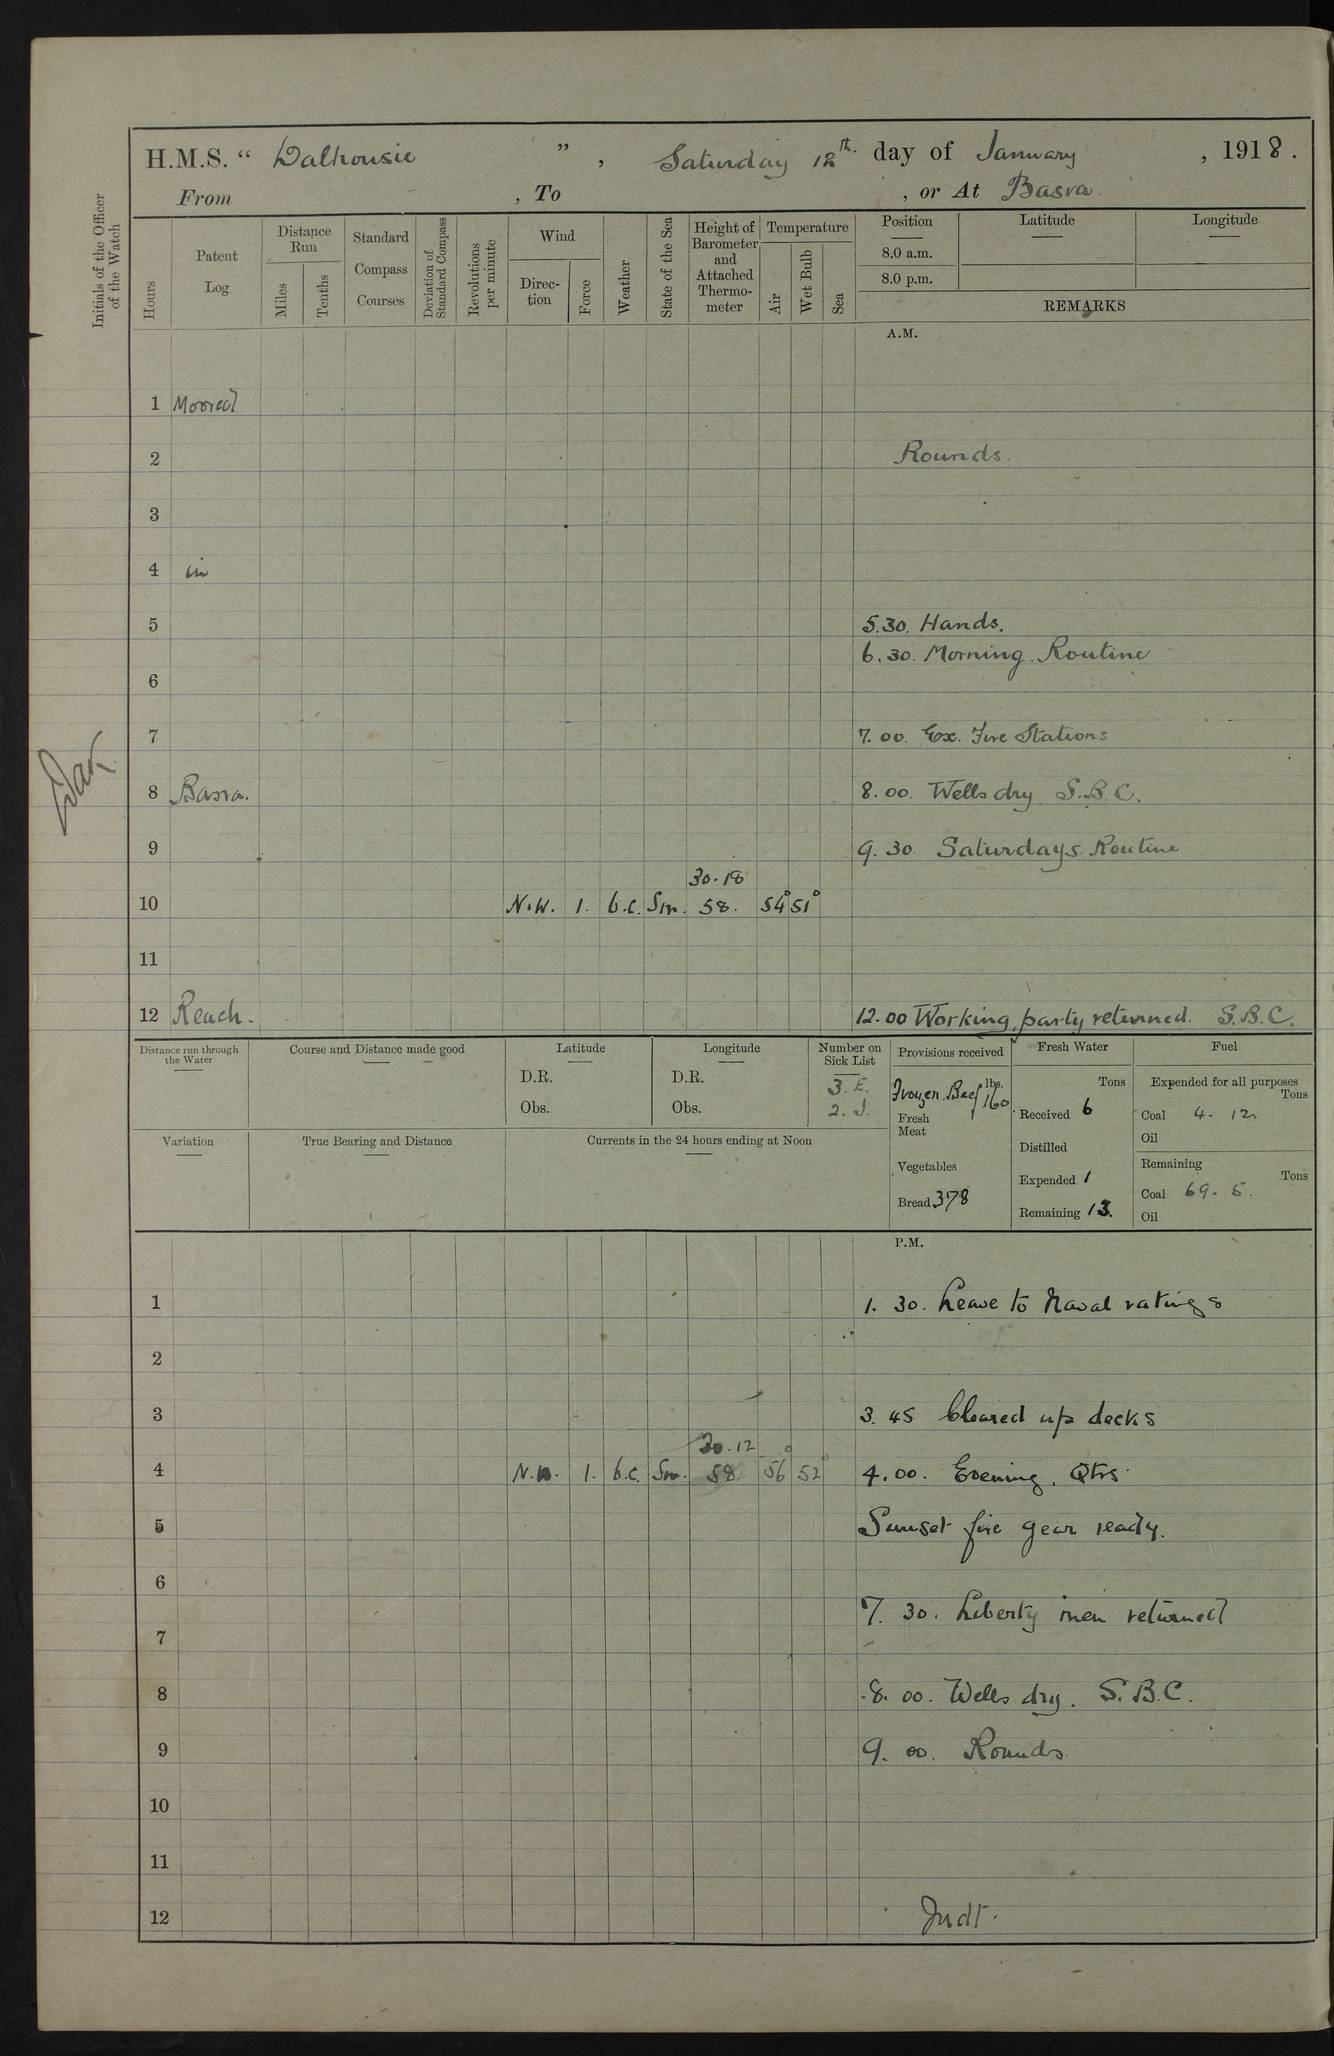 H.M.S. “ Dalhousie ” , Saturday 12th day of January , 1918 .
From , To , or At Basra.
Initials of the Officer of the Watch
Hours
Patent Log
Distance Run
Miles
Tenths
Standard Compass Courses
Deviation of Standard Compass
Revolutions per minute
Wind
Direction
Force
Weather
State of the Sea
Height of Barometer and Attached Thermometer
Temperature
Air
Wet Bulb
Sea
Position Latitude Longitude
8.0 a.m.
8.0 p.m.
REMARKS
A.M.
1 Moored
2 Rounds.
3
4 in
5 5.30. Hands.
6.30. Morning. Routine
6
7 7.00. Ex. Fire Stations
8 Basra. 8.00. Wells dry S.B.C.
9 9.30. Saturdays Routine
30.18
10 N.W. 1. b.c. Sm. 58. 54° 51°
11
12 Reach. 12.00 Working party returned. S.B.C.
Distance run through the Water
Course and Distance made good
Latitude
D.R.
Obs.
Longitude
D.R.
Obs.
Number on Sick List
3. E.
2. I.
Provisions received
lbs.
Frozen Beef 160
Fresh Meat
Vegetables
Bread 378
Fresh Water
Tons
Received 6
Distilled
Expended 1
Remaining 13.
Fuel
Expended for all purposes
Tons
Coal 4. 12
Oil
Remaining
Tons
Coal 69. 5.
Oil
Variation
True Bearing and Distance
Currents in the 24 hours ending at Noon
P.M.
1 1. 30. Leave to Naval ratings
2
3 3. 45 Cleared up decks
30.12
4 N.W. 1. b.c. Sm. 58 56° 52° 4.00. Evening. Qtrs.
5 Sunset fire gear ready.
6
7. 30. Liberty men returned
7
8 8. 00. Wells dry. S.B.C.
9 9. 00. Rounds.
10
11
12